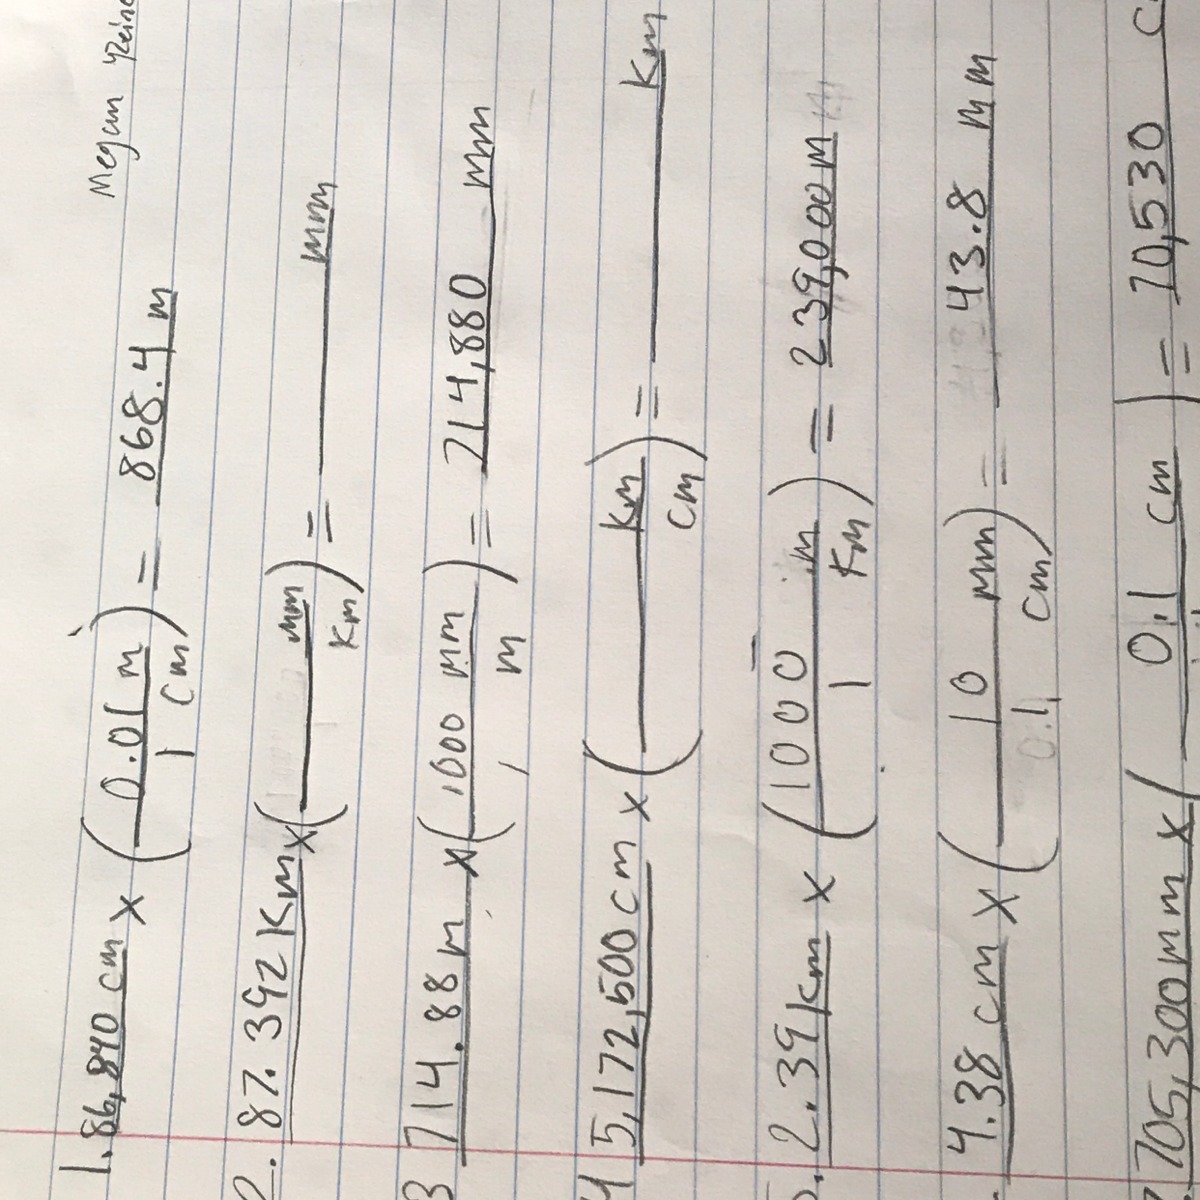 Megan
1. 86,840 cm x ( 0.01 m / 1 cm ) = 868.4 m
2. 87.392 Km x ( mm / Km ) = mm
3 714.88 m x ( 1000 mm / 1 m ) = 714,880 mm
4 5,172,500 cm x ( km / cm ) = km
5. 2.39 km x ( 1000 m / 1 km ) = 239,000 m
4.38 cm x ( 10 mm / 0.1 cm ) = 43.8 mm
7. 705,300 mm x ( 0.1 cm ) = 70,530 c